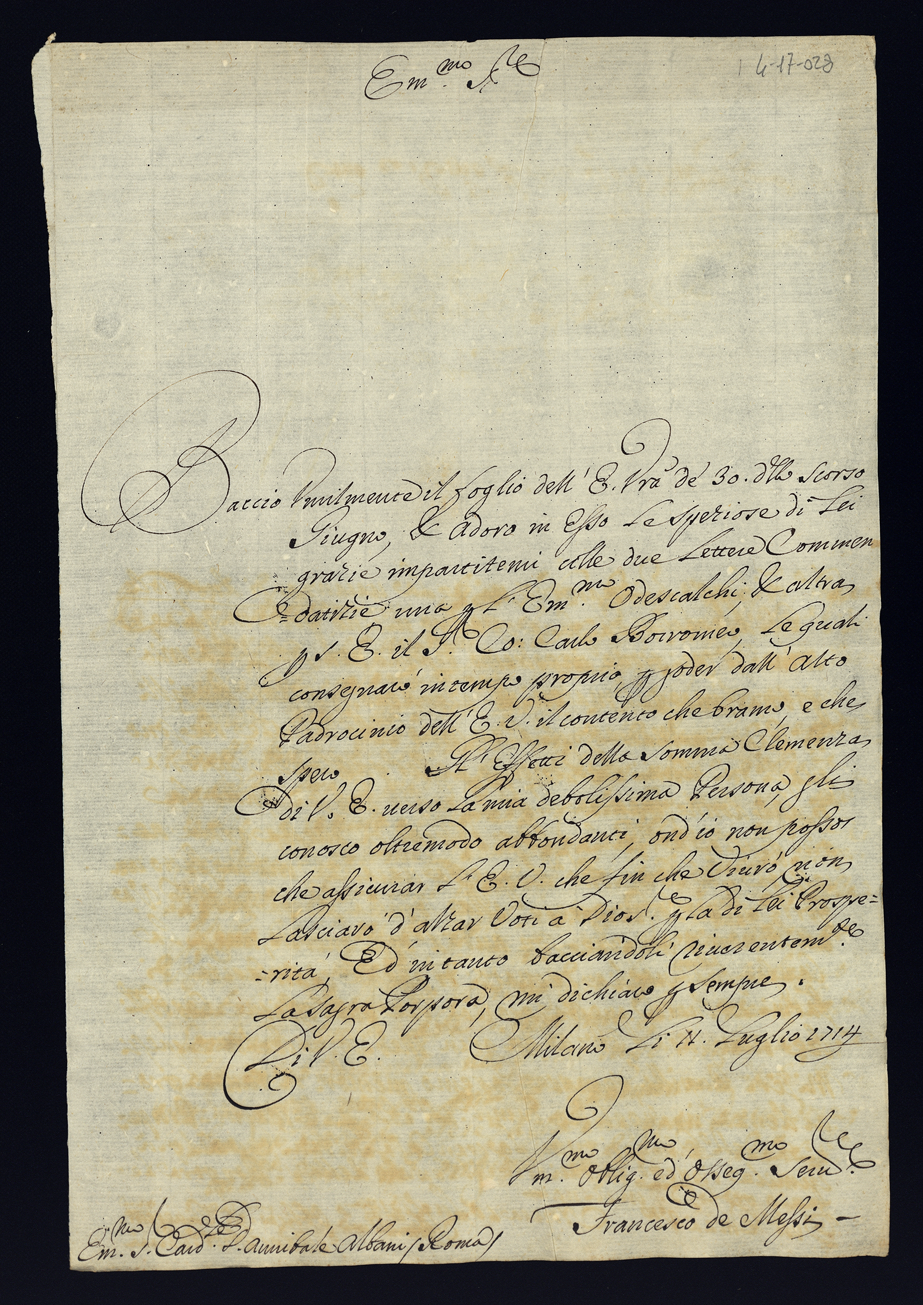 4-17-028
Em.mo S.re
Baccio Umilmente il foglio dell' E. Vra de' 30. dello scorso
Giugno, & adoro in Esso le speziose di Lei
grazie impartitemi colle due Lettere Commen
=datizie, una p L' Em.mo Odescalchi, & altra
p S. E. il S.r Co: Carlo Borromeo, le quali
consegnarò in tempo proprio, p goder dall' Alto
Padrocinio dell' E. V. il contento che bramo, e che
spero. Gl' Effetti della somma Clemenza
di V. E. verso la mia debolissima Persona, gli
conosco oltremodo abbondanti, ond' io non posso
che assicurar L' E. V. che fin che Viurò, non
Lasciarò d' alzar Voti a Dio p la di Lei Prospe=
=rità, Ed' intanto bacciandoli riuerentem.te
La Sagra Porpora, mi dichiaro p sempre.
Di V. E. Milano Li 11. Luglio 1714
Um.mo Oblig.mo ed' Osseq.mo Seru.re
Francesco de Messi
Em.mo S. Card.le D. Annibale Albani / Roma /